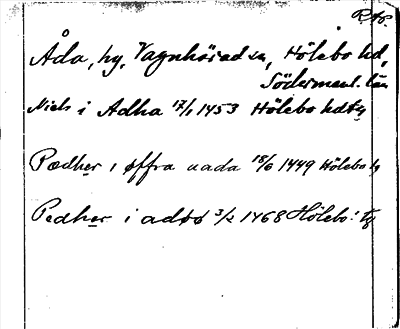 Åda, by, Vagnhärad sn, Hölebo hd,
Södermanl. län
Niels i Adha 17/1 1453 Hölebo hds tg
Pædher i øffra aada 18/6 1449 Hölebo tg
Pedher i adøø 3/2 1468 Hölebo: tg